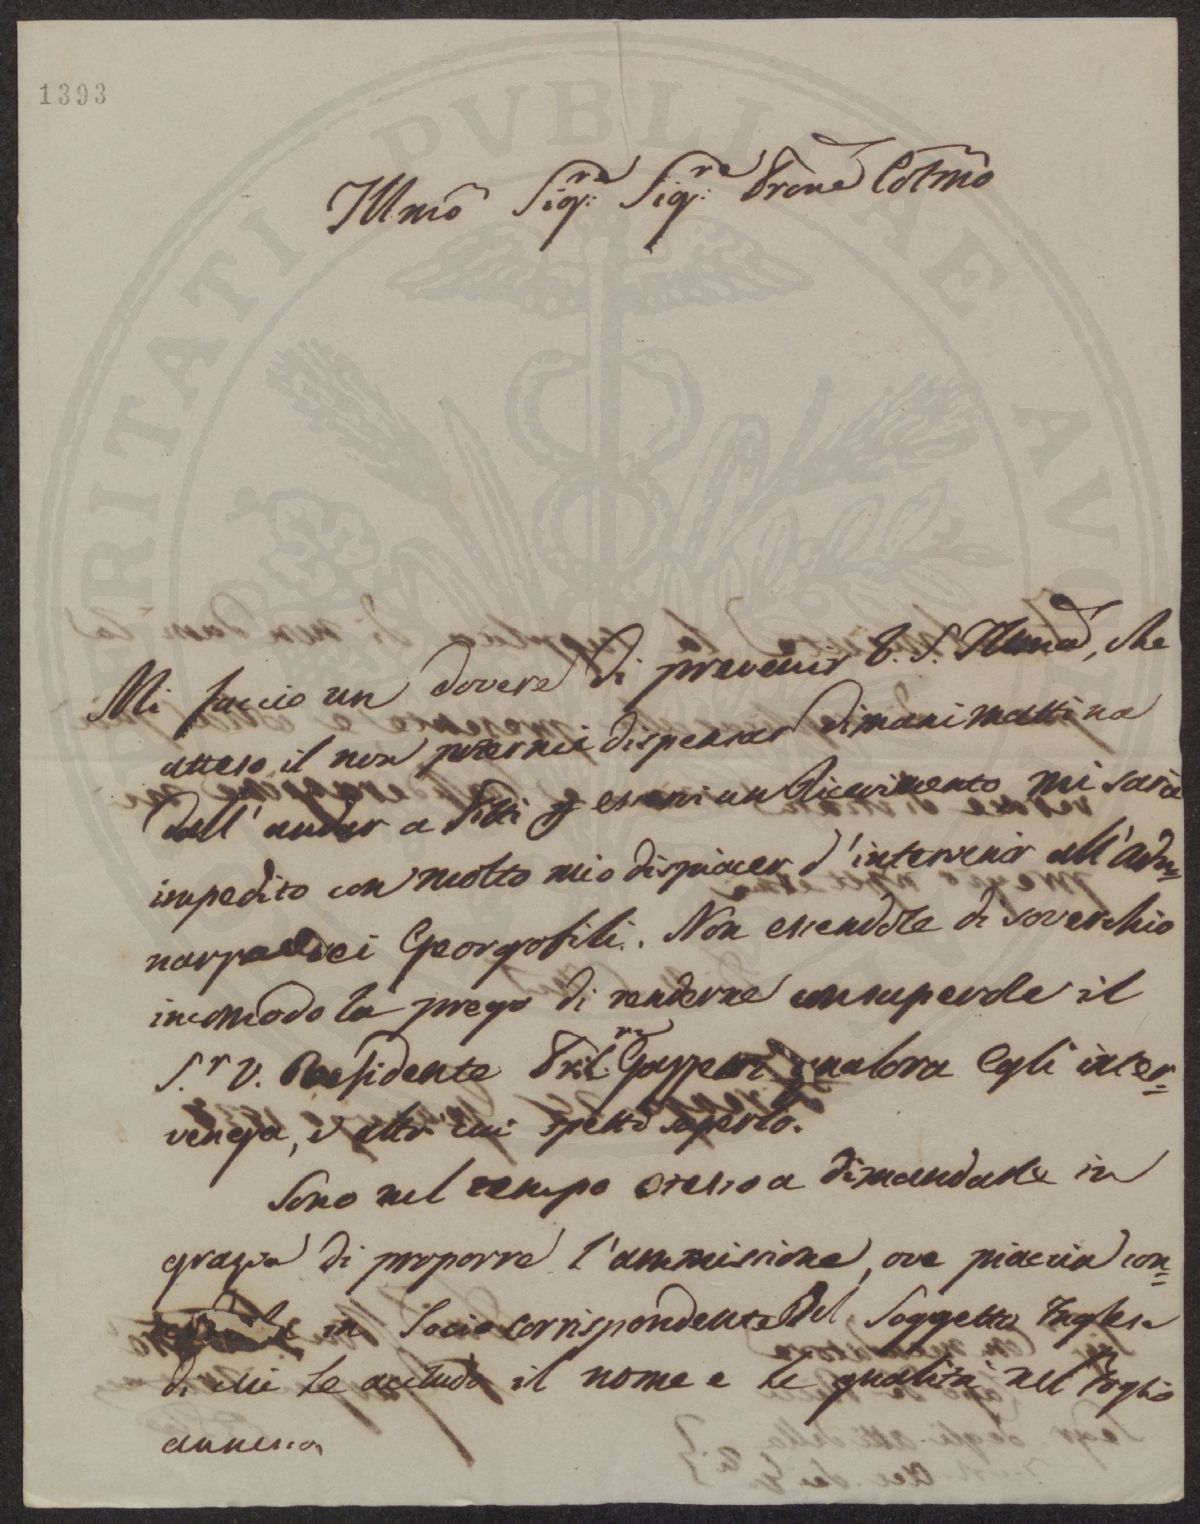 1393
Illmõ Sig:re Sig:re Prone Colmõ
Mi faccio un dovere di prevenir V. S. Illma, che
atteso il non potermi dispensar dimani mattina
dall' andar a Pitti esservi un Ricevimento mi sarà
impedito con molto mio dispiacer d'intervenir all'Adu=
nanza dei Georgofili. Non essendole di soverchio
incomodo la prego di renderne consapevole il
S.r V. Presidente Gazzeri qualora Egli inter=
venga, o altr cui spetti saperlo.
Sono nel tempo stesso a dimandarle in
grazia di proporre l'ammissione, ove piaccia con=
in Socio corrispondente del Soggetto Inglese
di cui Le accludo il nome e le qualità nel Foglio
annesso